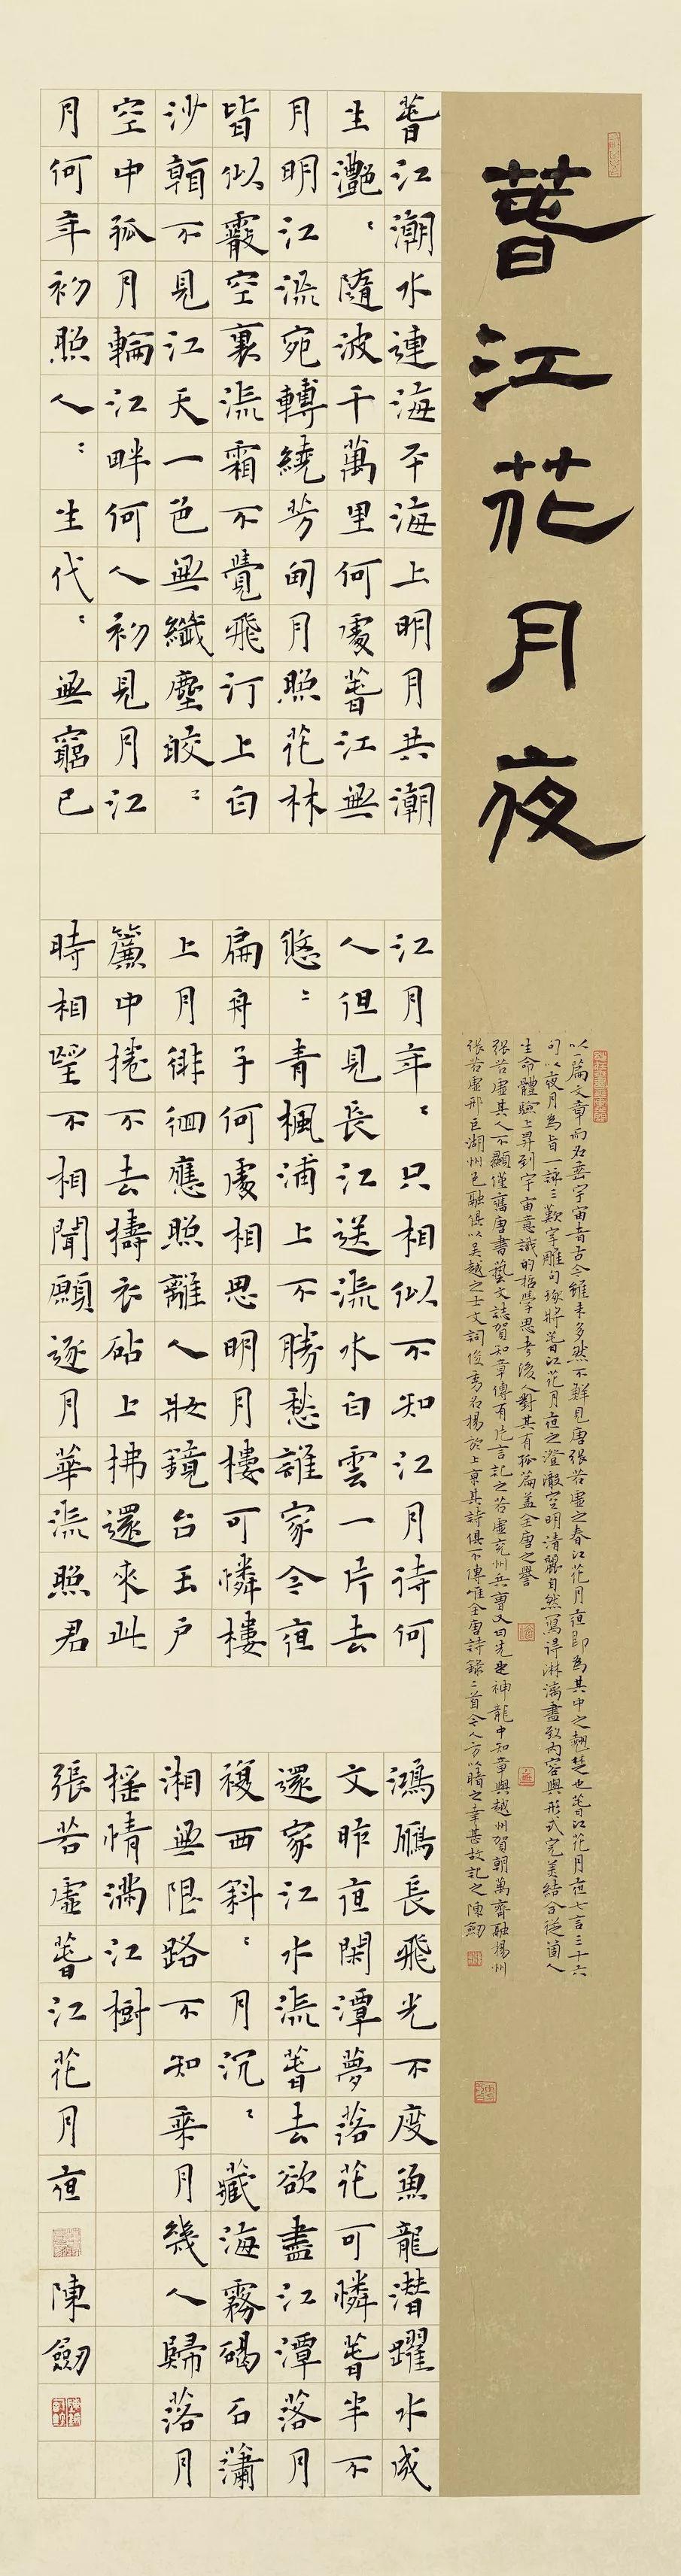 春江花月夜
以一篇文章而名垂宇宙者古今雖未多然不鮮見唐張若虛之春江花月夜即為其中之翹楚也春江花月夜七言三十六
句以夜月為旨一詠三歎字雕句琢將春江花月夜之澄澈空明清麗自然寫得淋漓盡致內容與形式完美結合從箇人
生命體驗上昇到宇宙意識的哲學思考後人對其有孤篇蓋全唐之譽
張若虛其人不顯僅舊唐書藝文誌賀知章傳有片言記之若虛兗州兵曹又曰先是神龍中知章與越州賀朝萬齊融揚州
張若虛邢巨湖州包融俱以吳越之士文詞俊秀名揚於上京其詩俱不傳唯全唐詩錄二首令人方以暗之幸甚故記之陳劍
春江潮水連海平海上明月共潮
生灩〻隨波千萬里何處春江無
月明江流宛轉繞芳甸月照花林
皆似霰空裏流霜不覺飛汀上白
沙看不見江天一色無纖塵皎〻
空中孤月輪江畔何人初見月江
月何年初照人〻生代〻無窮已
江月年〻只相似不知江月待何
人但見長江送流水白雲一片去
悠〻青楓浦上不勝愁誰家今夜
扁舟子何處相思明月樓可憐樓
上月徘徊應照離人妝鏡台玉戶
簾中捲不去擣衣砧上拂還來此
時相望不相聞願逐月華流照君
鴻雁長飛光不度魚龍潛躍水成
文昨夜閑潭夢落花可憐春半不
還家江水流春去欲盡江潭落月
複西斜〻月沉〻藏海霧碣石瀟
湘無限路不知乘月幾人歸落月
搖情滿江樹
張若虛春江花月夜
陳劍